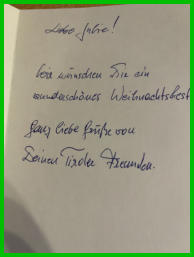 Liebe Jutre!
wir wünschen Dir ein
wunderschönes Weihnachtsfest
Ganz liebe Grüße von
Deinen Tiroler Freunden.